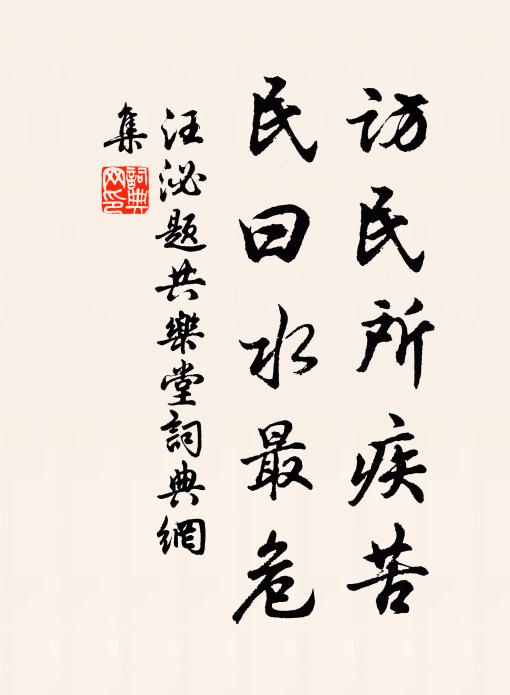 访民所疾苦
民曰水最危
汪泌题共樂堂詞典網
集
詞典
网印